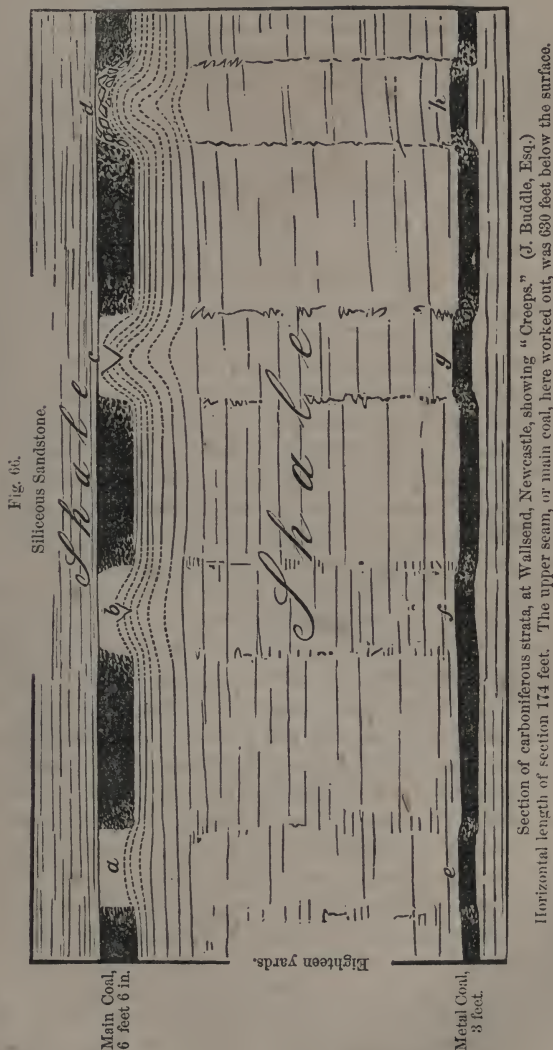 Fig. 66.
Siliceous Sandstone.
Shale
a
b
c
d
Main Coal,
6 feet 6 in.
Shale
Eighteen yards.
e
f
g
h
Metal Coal,
3 feet.
Section of carboniferous strata, at Wallsend, Newcastle, showing "Creeps." (J. Buddle, Esq.)
Horizontal length of section 174 feet. The upper seam, or main coal, here worked out, was 630 feet below the surface.